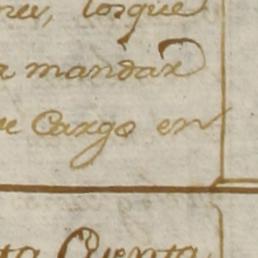 losque
mandar
Cargo en
ta Quenta